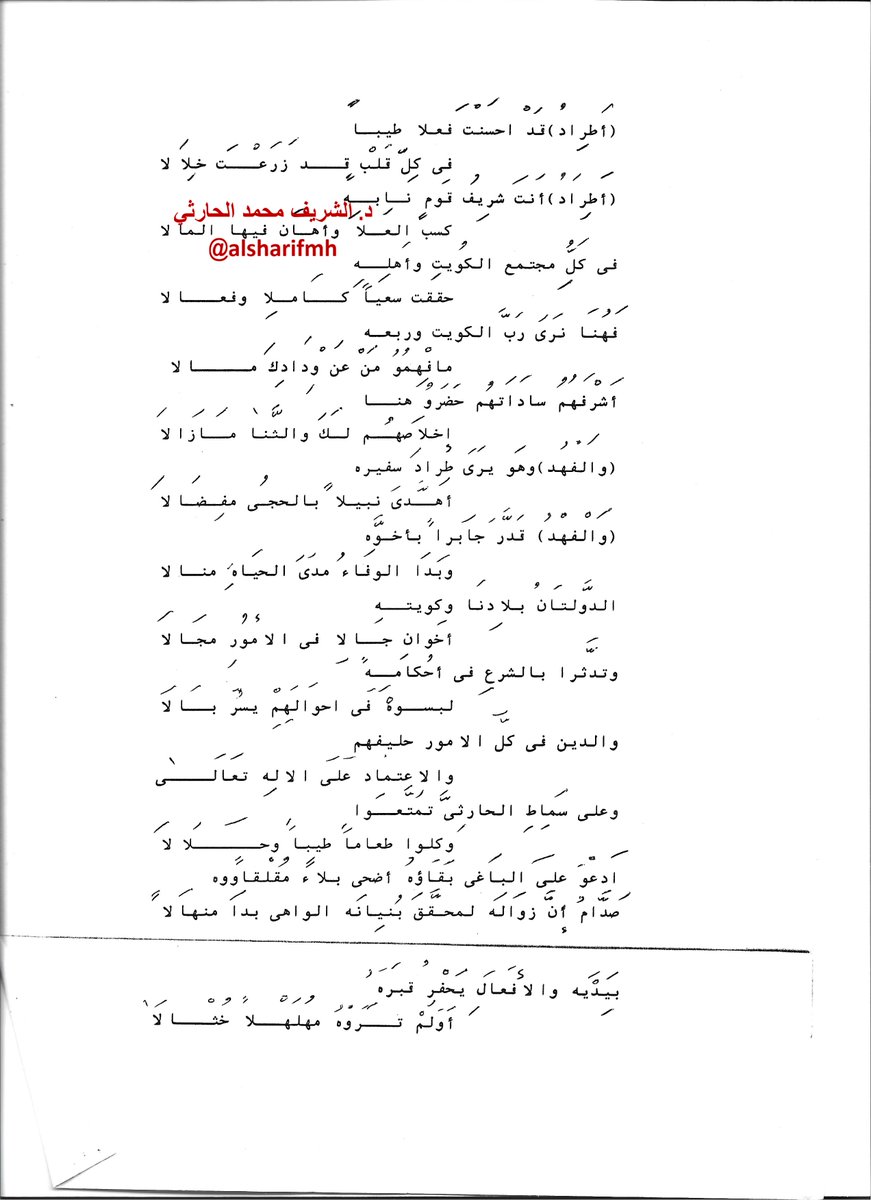 (أطراد) قد احسنت فعلا طيبا
فى كل قلب قد زرعت خلالا
(أطراد) أنت شريف قوم نابه
د. الشريف محمد الحارثي
كسب العلا وأهان فيها المالا
@alsharifmh
فى كل مجتمع الكويت وأهله
حققت سعياً كاملا وفعالا
فهنا نرى رب الكويت وربعه
مافهمو من عن ودادك مالا
أشرفهم ساداتهم حضرو هنا
إخلاصهم لك والثنا مازالا
(والفهد) وهو يرى طراد سفيره
أهدى نبيلاً بالحجى مفضالا
(والفهد) قدر جابراً بأخوه
وبدا الوفاء مدى الحياه منالا
الدولتان بلادنا وكويته
أخوان جالا فى الامور مجالا
وتدثرا بالشرع فى أحكامه
لبسوة فى احوالهم يسر بالا
والدين فى كل الامور حليفهم
والاعتماد على الاله تعالى
وعلى سماط الحارثى تمتعوا
وكلوا طعاماً طيباً وحلالا
ادعو على الباغى بقاؤه أضحى بلاء مقلقاووه
صدام إن زواله لمحقق بنيانه الواهى بدا منهالاً
بيديه والأفعال يحفر قبره
أولم تروه مهلهلا خثالا